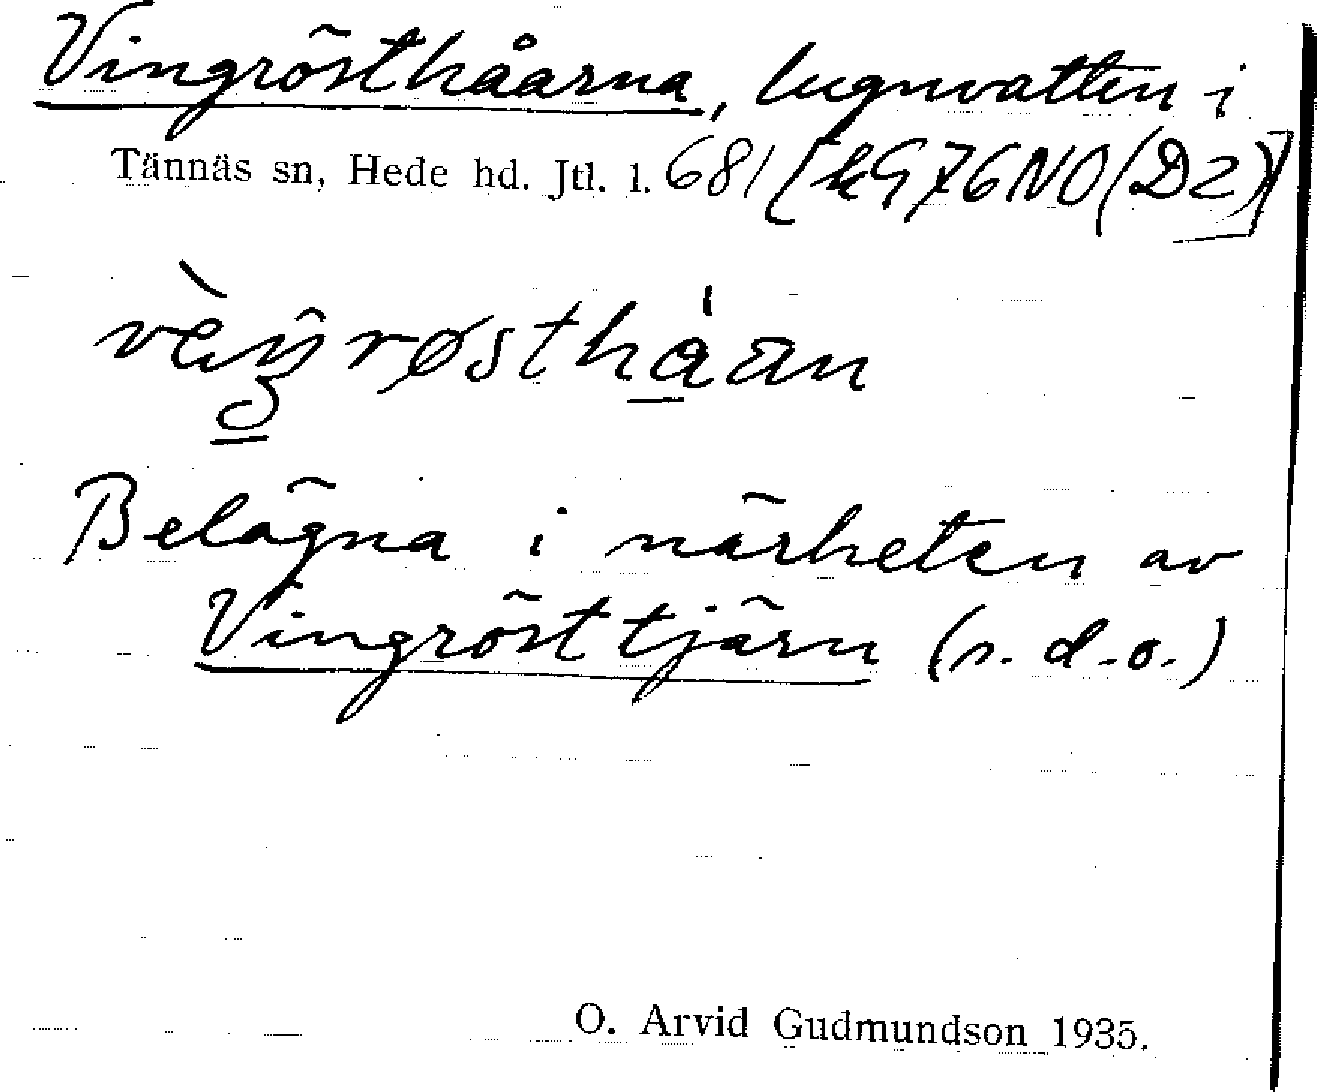 Vingrösthåarna, lugnvatten i
Tännäs sn, Hede hd. Jtl. l. 681 [kG76NO(D2)]
Belägna i närheten av
Vingrösttjärn (s.d.o.)
O. Arvid Gudmundson 1935.